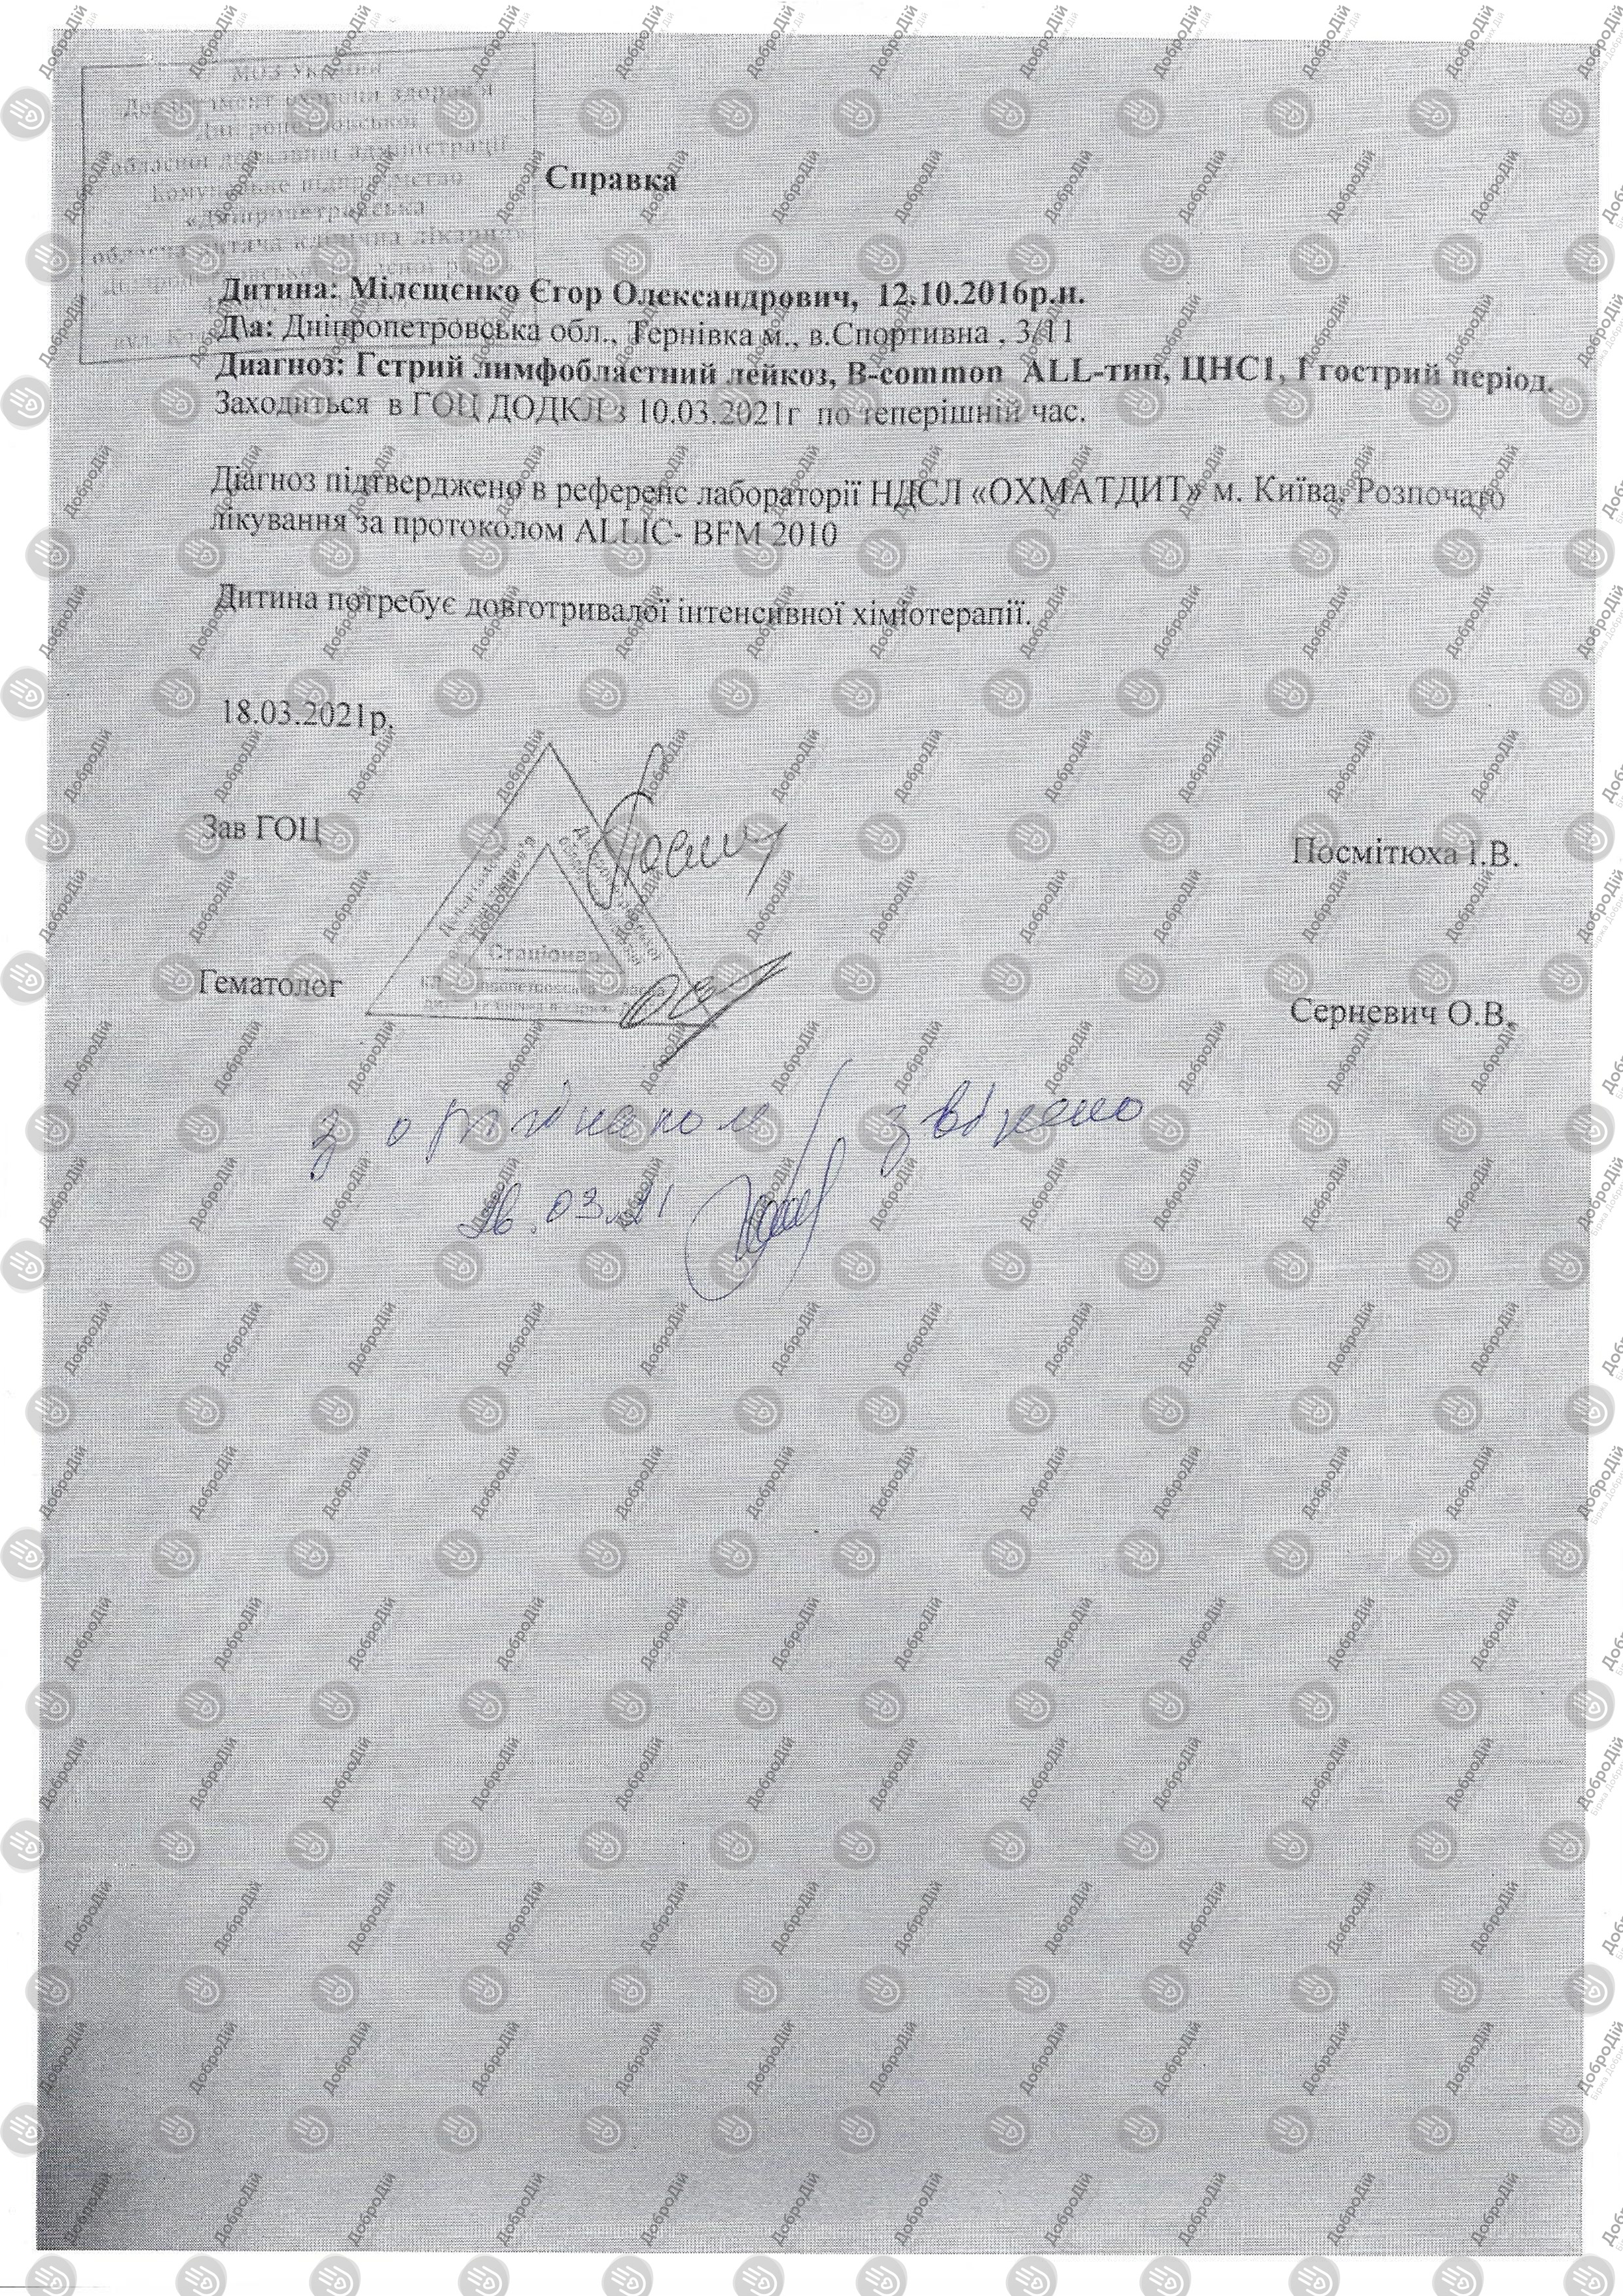 МОЗ України
Департамент охорони здоров'я
Дніпропетровської
обласної державної адміністрації
Комунальне підприємство
«Дніпропетровська
обласна дитяча клінічна лікарня»
Дніпропетровської обласної ради
Справка
Дитина: Мілєщєнко Єгор Олександрович, 12.10.2016р.н.
Д\а: Дніпропетровська обл., Тернівка м., в.Спортивна , 3/11
Диагноз: Гстрий лимфобластний лейкоз, B-common ALL-тип, ЦНС1, I гострий період.
Заходиться в ГОЦ ДОДКЛ з 10.03.2021г по теперішній час.
Діагноз підтверджено в референс лабораторії НДСЛ «ОХМАТДИТ» м. Київа. Розпочато
лікування за протоколом ALLIC- BFM 2010
Дитина потребує довготривалої інтенсивної хіміотерапії.
18.03.2021р.
Зав ГОЦ
Посмітюха І.В.
Стаціонар
Гематолог
Серневич О.В.
з оригіналом звірено
26.03.21
ДоброДій